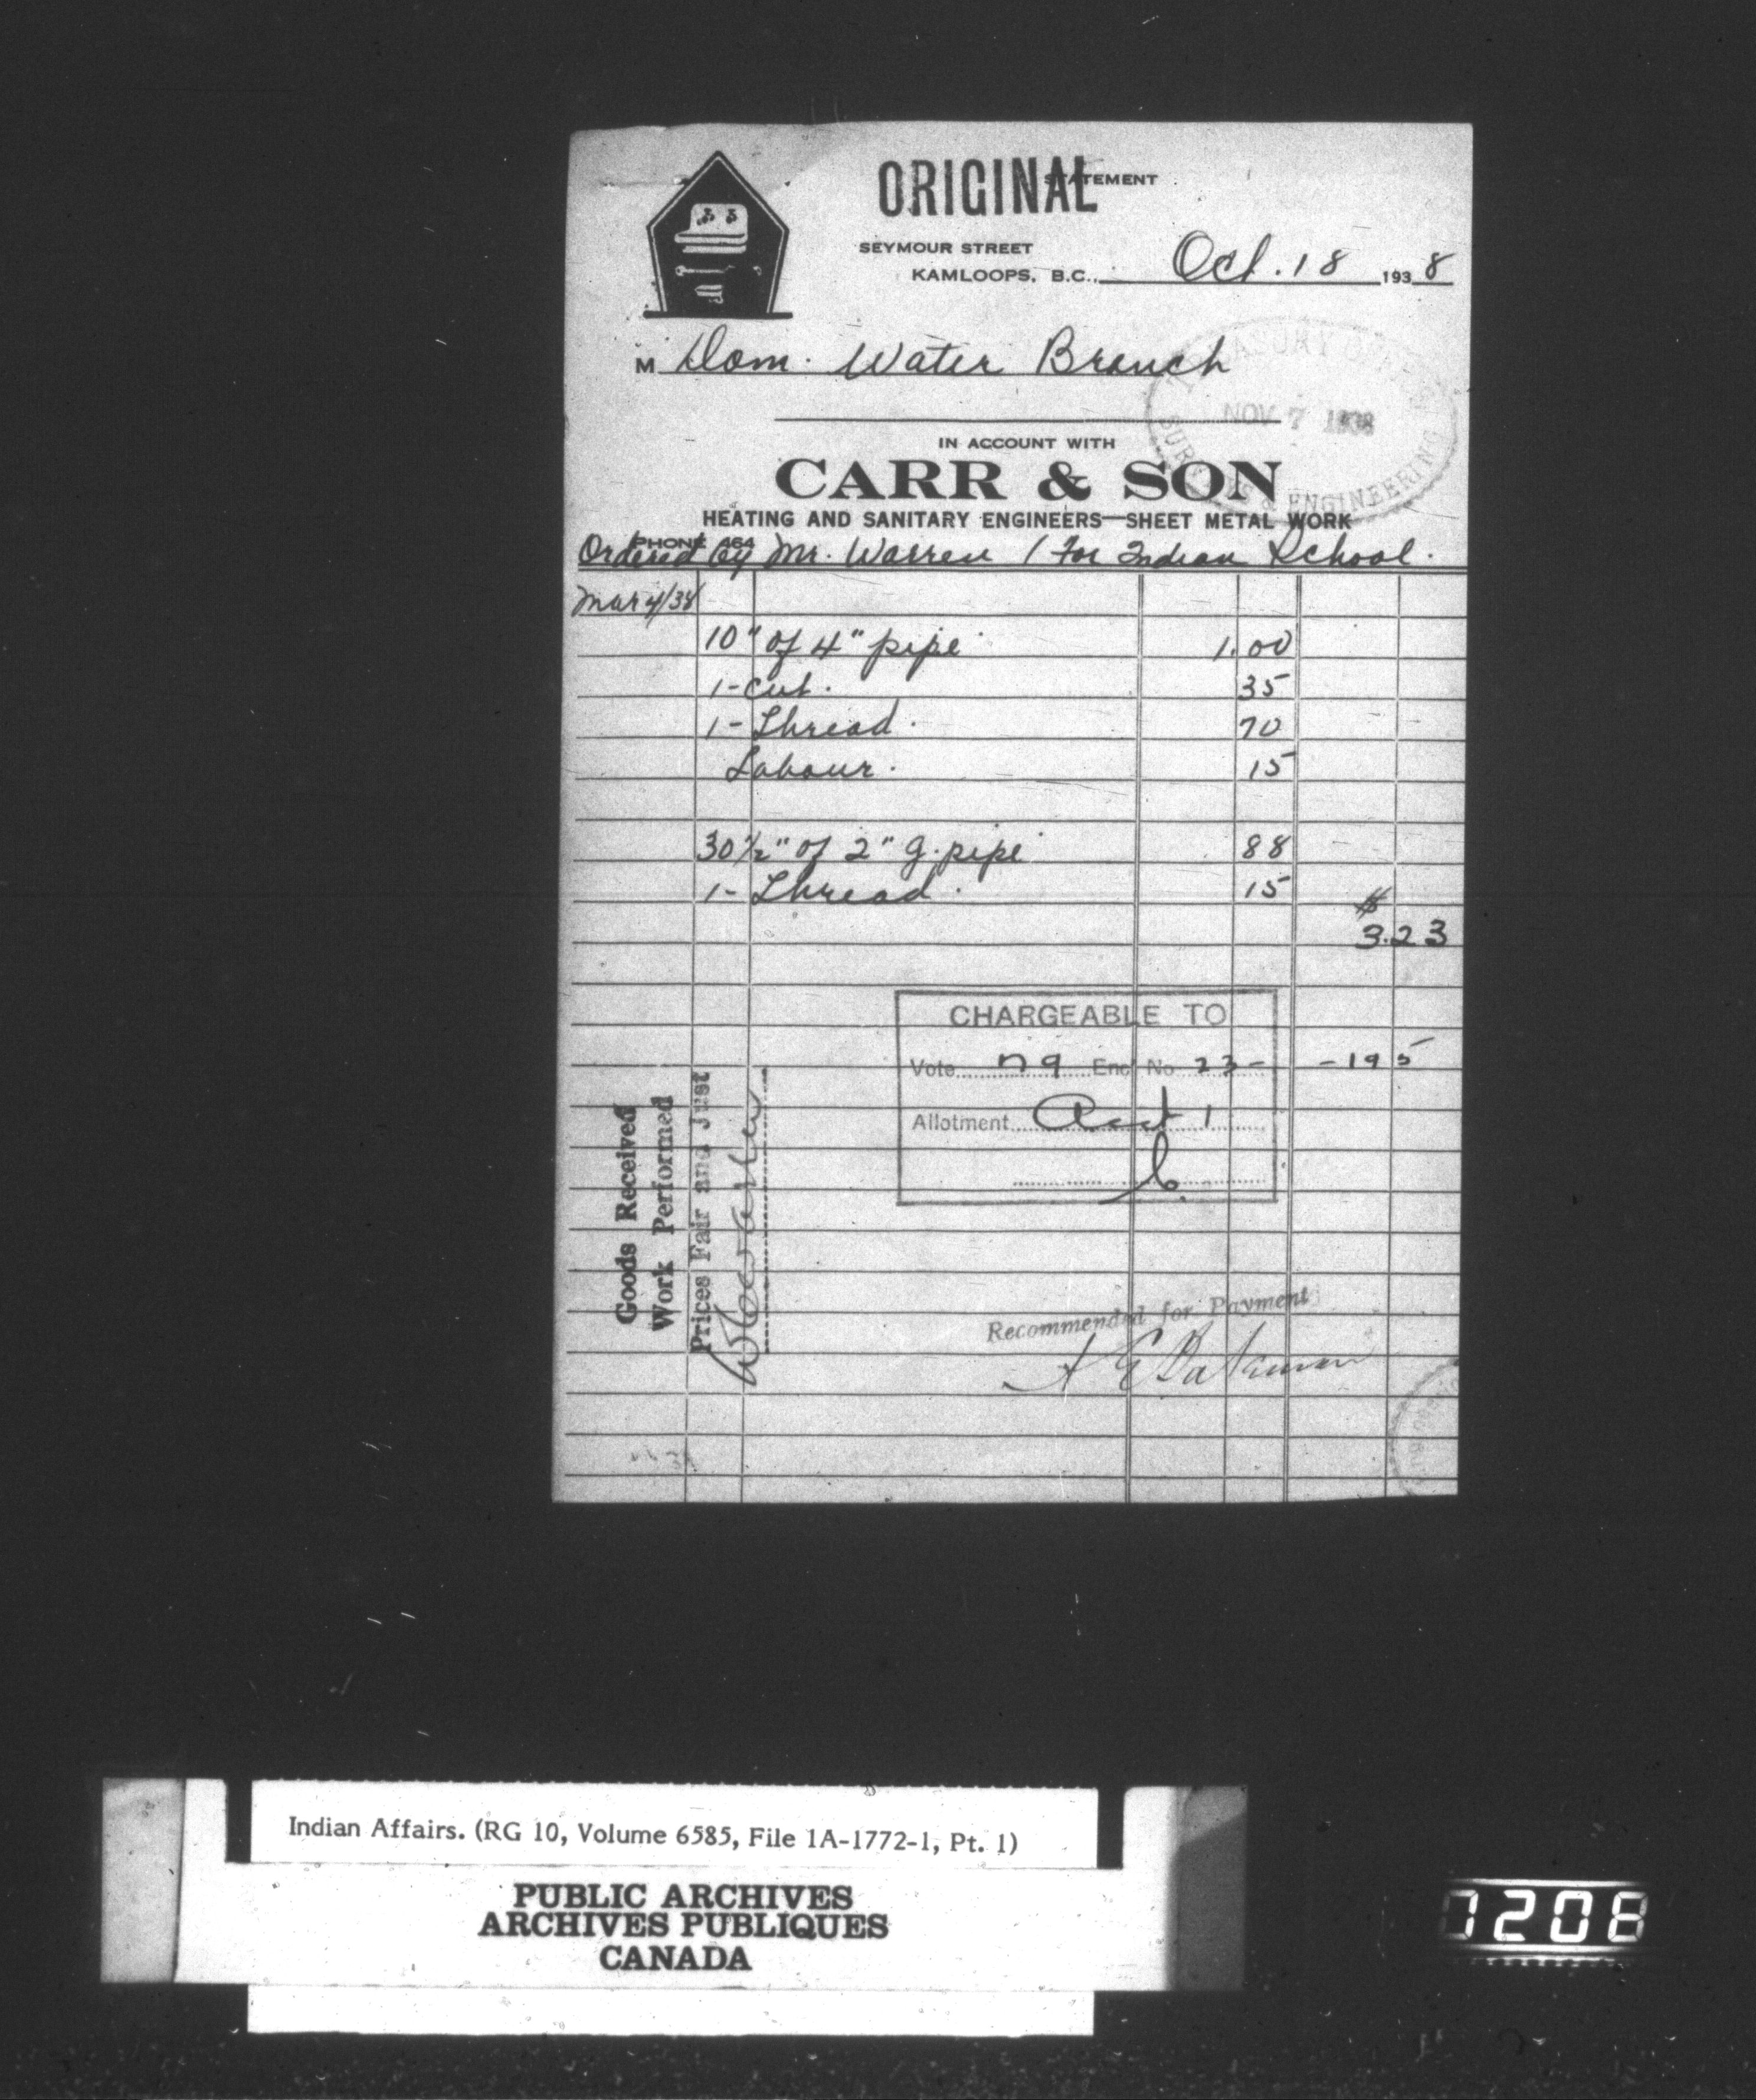 ORIGINAL
STATEMENT
SEYMOUR STREET
KAMLOOPS, B.C., Oct. 18 1938
M Dom. Water Branch
NOV 7 1938
ENGINEERING
IN ACCOUNT WITH
CARR & SON
HEATING AND SANITARY ENGINEERS—SHEET METAL WORK
PHONE 464
Ordered by Mr. Warren / For Indian School.
Mar 4/38
10" of 4" pipe 1.00
1- Cut. 35
1- Thread. 70
Labour. 15
30 1/2" of 2" g. pipe 88
1- Thread. 15
$
3.23
CHARGEABLE TO
Vote Encl No 23- -195
Allotment
Goods Received
Work Performed
Prices Fair and Just
Recommended for Payment
Indian Affairs. (RG 10, Volume 6585, File 1A-1772-1, Pt. 1)
PUBLIC ARCHIVES
ARCHIVES PUBLIQUES
CANADA
208